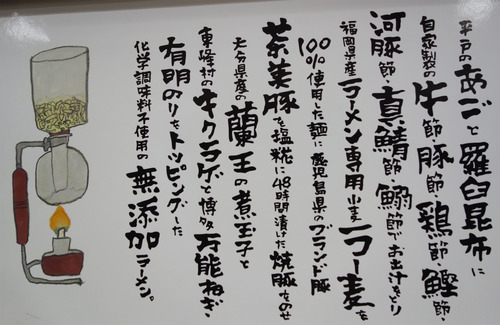 平戸のあごと羅臼昆布に
自家製の牛節・豚節・鶏節・鰹節・
河豚節・真鯖節・鰯節でお出汁をとり
福岡県産ラーメン専用小麦ラー麦を
100%使用した麺に鹿児島県のブランド豚
茶美豚を塩糀に48時間漬けた焼豚をのせ
大分県産の蘭王の煮玉子と
東峰村のキクラゲと博多万能ねぎ・
有明のりをトッピングした
化学調味料不使用の無添加ラーメン。